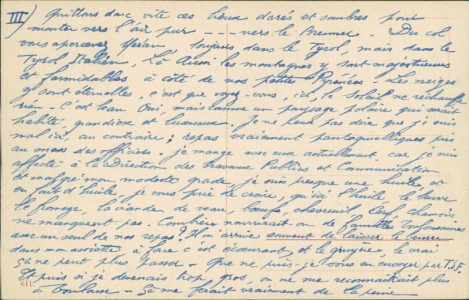 III) Quittons donc vite ces lieux dorés et sombres pour
monter vers l'air pur --- vers le Brenner - Du col
vous apercevez toujours dans le Tyrol, mais dans le
Tyrol Italien, Là aussi les montagnes y sont majestueuses
et formidables à côté de nos petites Les neiges
y sont éternelles, c'est que voyez-vous ici, le soleil ne réchauffe
rien - C'est beau Oui, mais comme un paysage polaire qui serait
habité, grandiose et Je ne peux pas dire que je suis
mal ici, au contraire; repas vraiment pantagruéliques pris
au mess des officiers, je mange avec eux actuellement, car je suis
affecté à la Direction des travaux Publics et Communication
et malgré mon modeste grade, je suis presque une huile et
en fait d'huile, je vous prie de croire, qu'ici l'huile, le beurre
le fromage, la viande de veau, boeuf, chevreuil, cerf, chamois,
ne manquent pas - Combien nourrirait-on de familles
avec un seul de nos repas? Il m'arrive souvent de laisser le beurre
dans mon assiette à faire c'est écoeurant, et le gruyère, le vrai
ça ne peut plus passer - Que ne puis-je vous en envoyer par T.S.F.
Et puis si je devenais trop gros, on ne me reconnaîtrait plus
à Toulouse - Ça me ferait vraiment de la peine